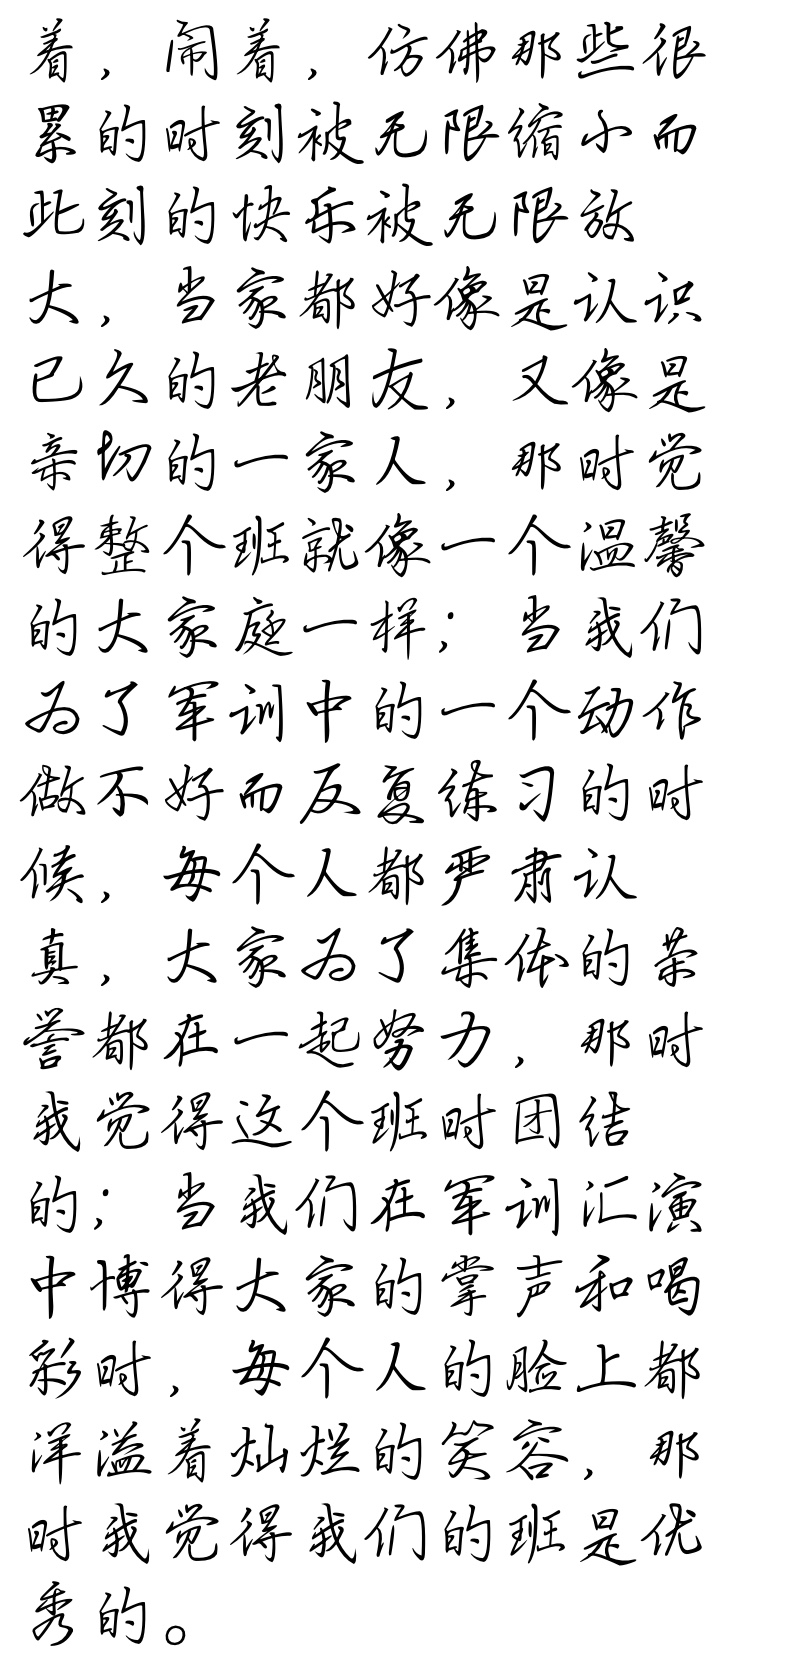 着，闹着，仿佛那些很
累的时刻被无限缩小而
此刻的快乐被无限放
大，当家都好像是认识
已久的老朋友，又像是
亲切的一家人，那时觉
得整个班就像一个温馨
的大家庭一样；当我们
为了军训中的一个动作
做不好而反复练习的时
候，每个人都严肃认
真，大家为了集体的荣
誉都在一起努力，那时
我觉得这个班时团结
的；当我们在军训汇演
中博得大家的掌声和喝
彩时，每个人的脸上都
洋溢着灿烂的笑容，那
时我觉得我们的班是优
秀的。